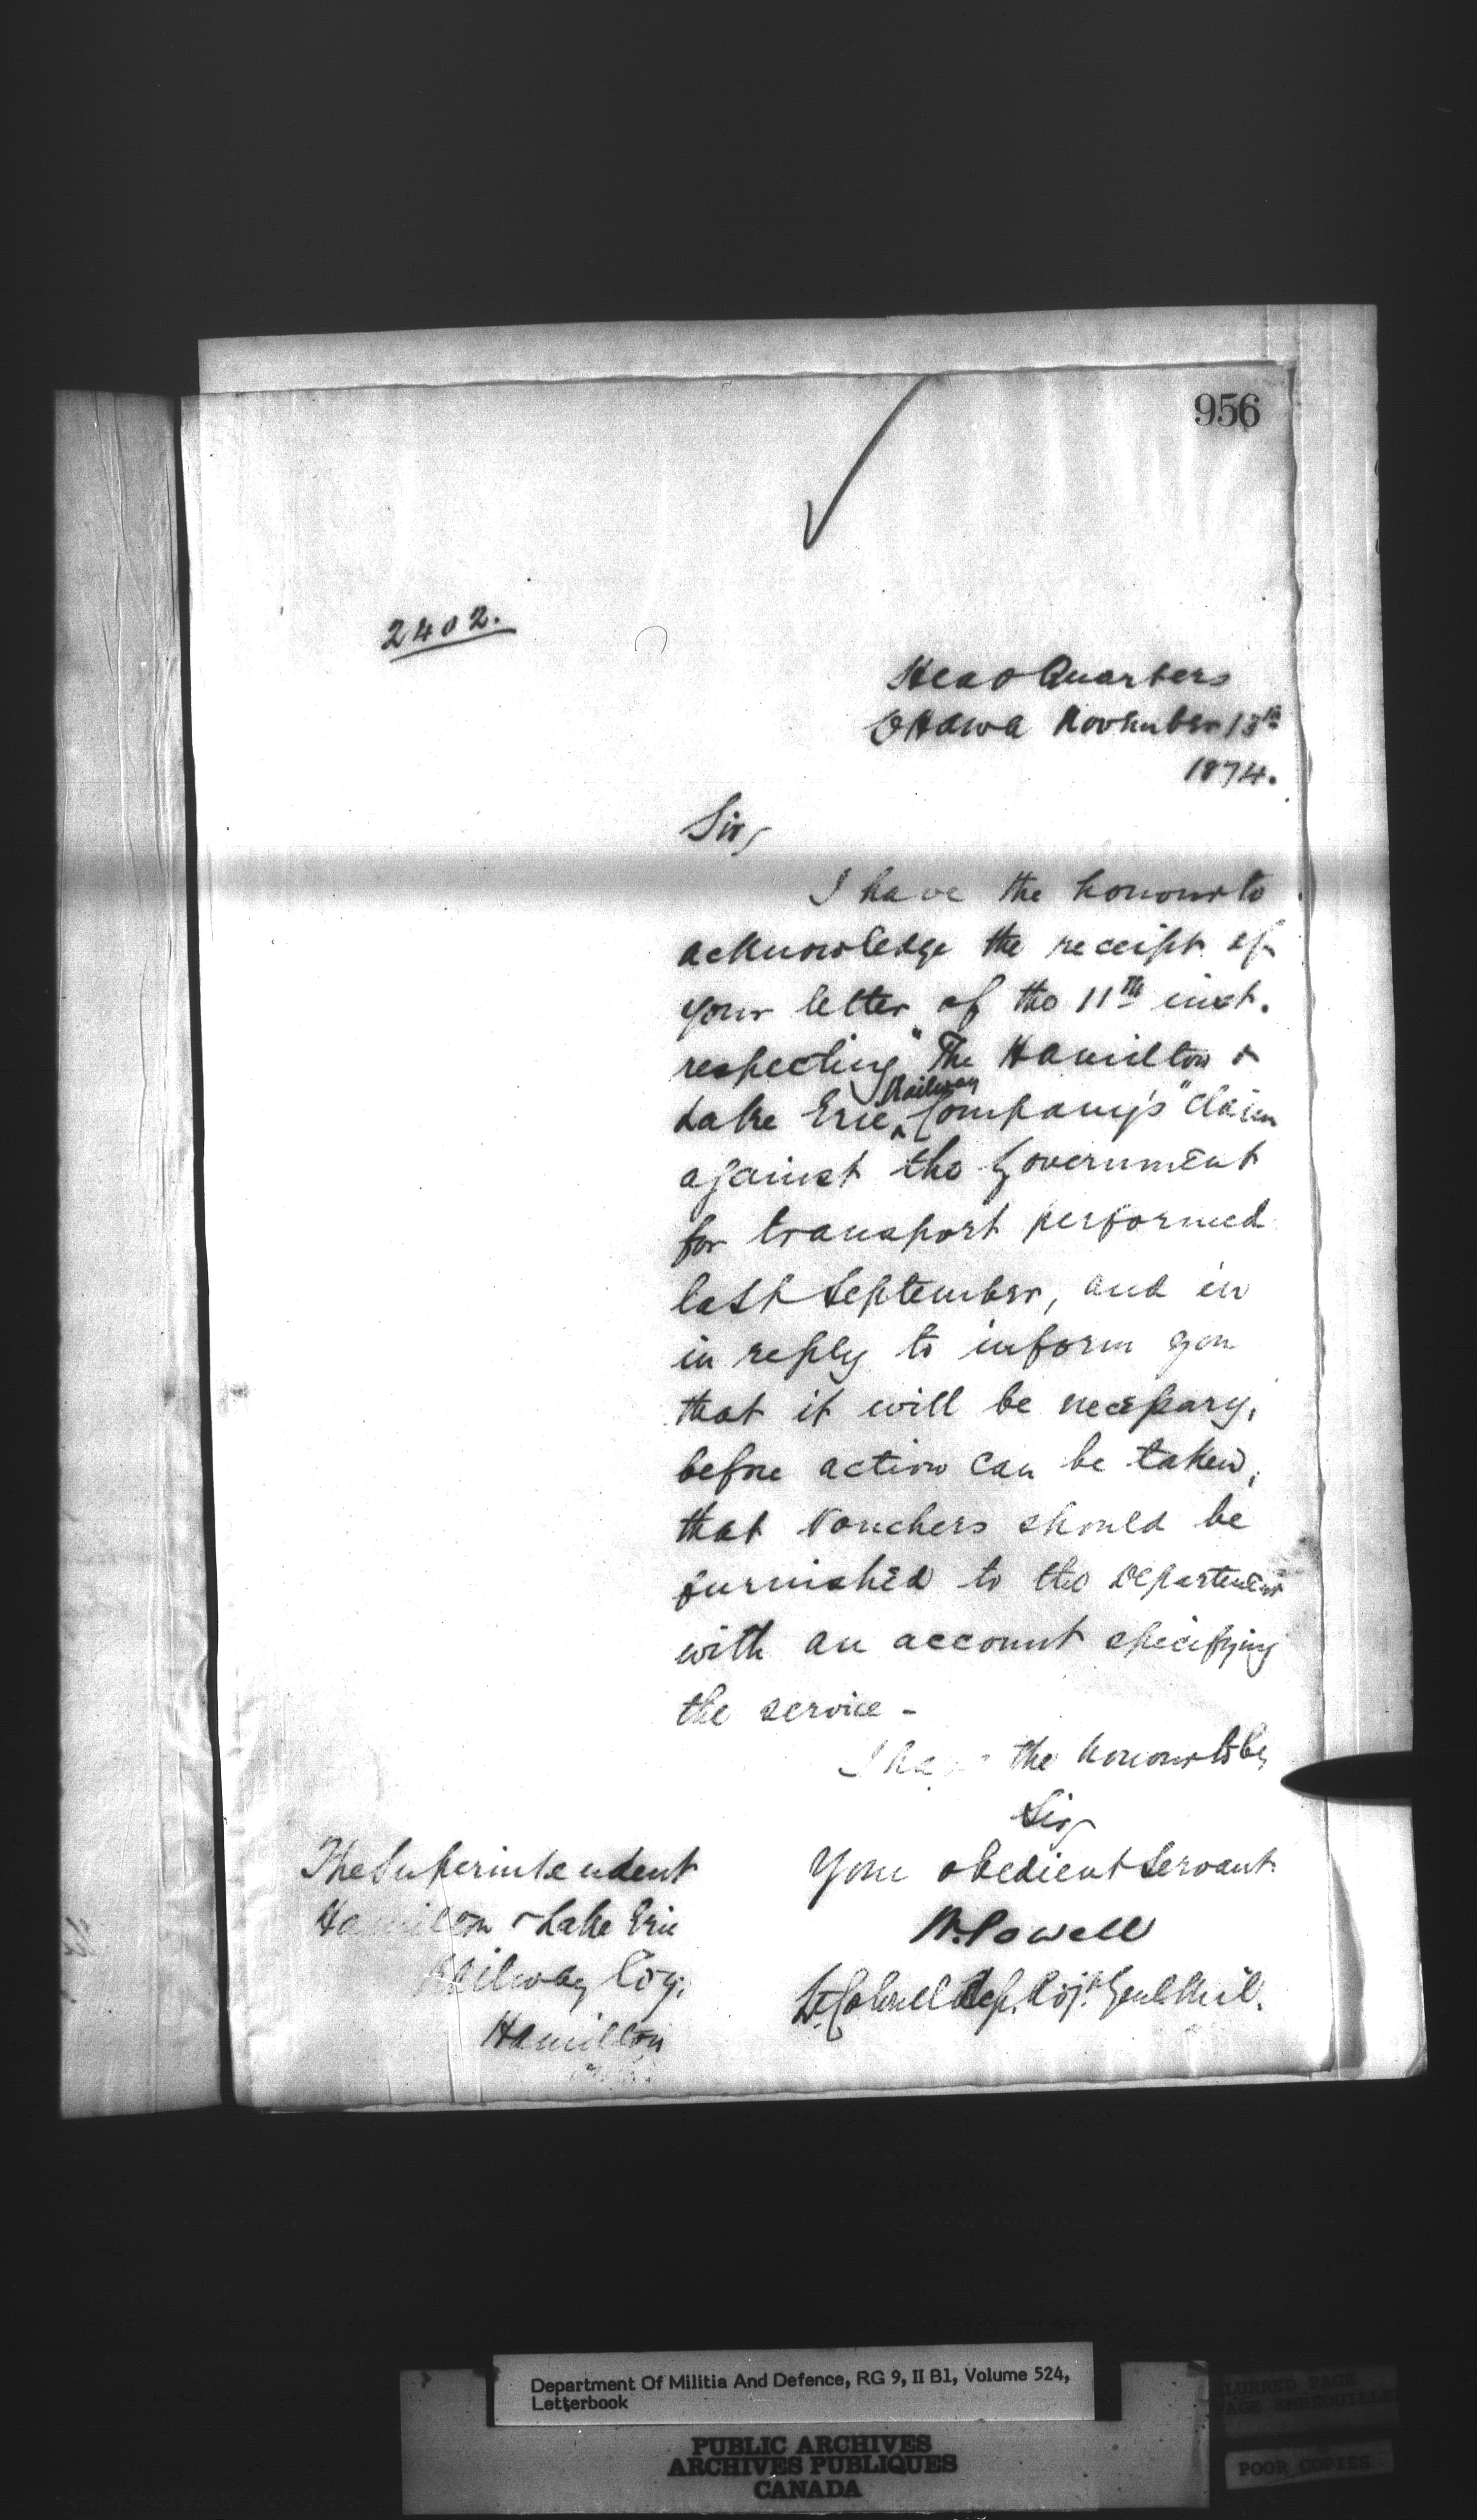 956
2402.
Head Quarters
Ottawa November 13th
1874.
Sir,
I have the honour to
acknowledge the receipt of
your letter of the 11th inst.
respecting "The Hamilton &
Lake Erie Railway Company's" claim
against the Government
for transport performed
last September, and in
in reply to inform you
that it will be necessary,
before action can be taken,
that vouchers should be
furnished to the Department
with an account specifying
the service -
I have the honour to be,
Sir,
Your obedient Servant
W. Powell
Lt. Colonel Dep. Adjt. Genl. Mil.
The Superintendent
Hamilton & Lake Erie
Railway Coy.
Hamilton
Department Of Militia And Defence, RG 9, II B1, Volume 524,
Letterbook
PUBLIC ARCHIVES
ARCHIVES PUBLIQUES
CANADA
BLURRED PAGE
PAGE EMBROUILLEE
POOR COPIES